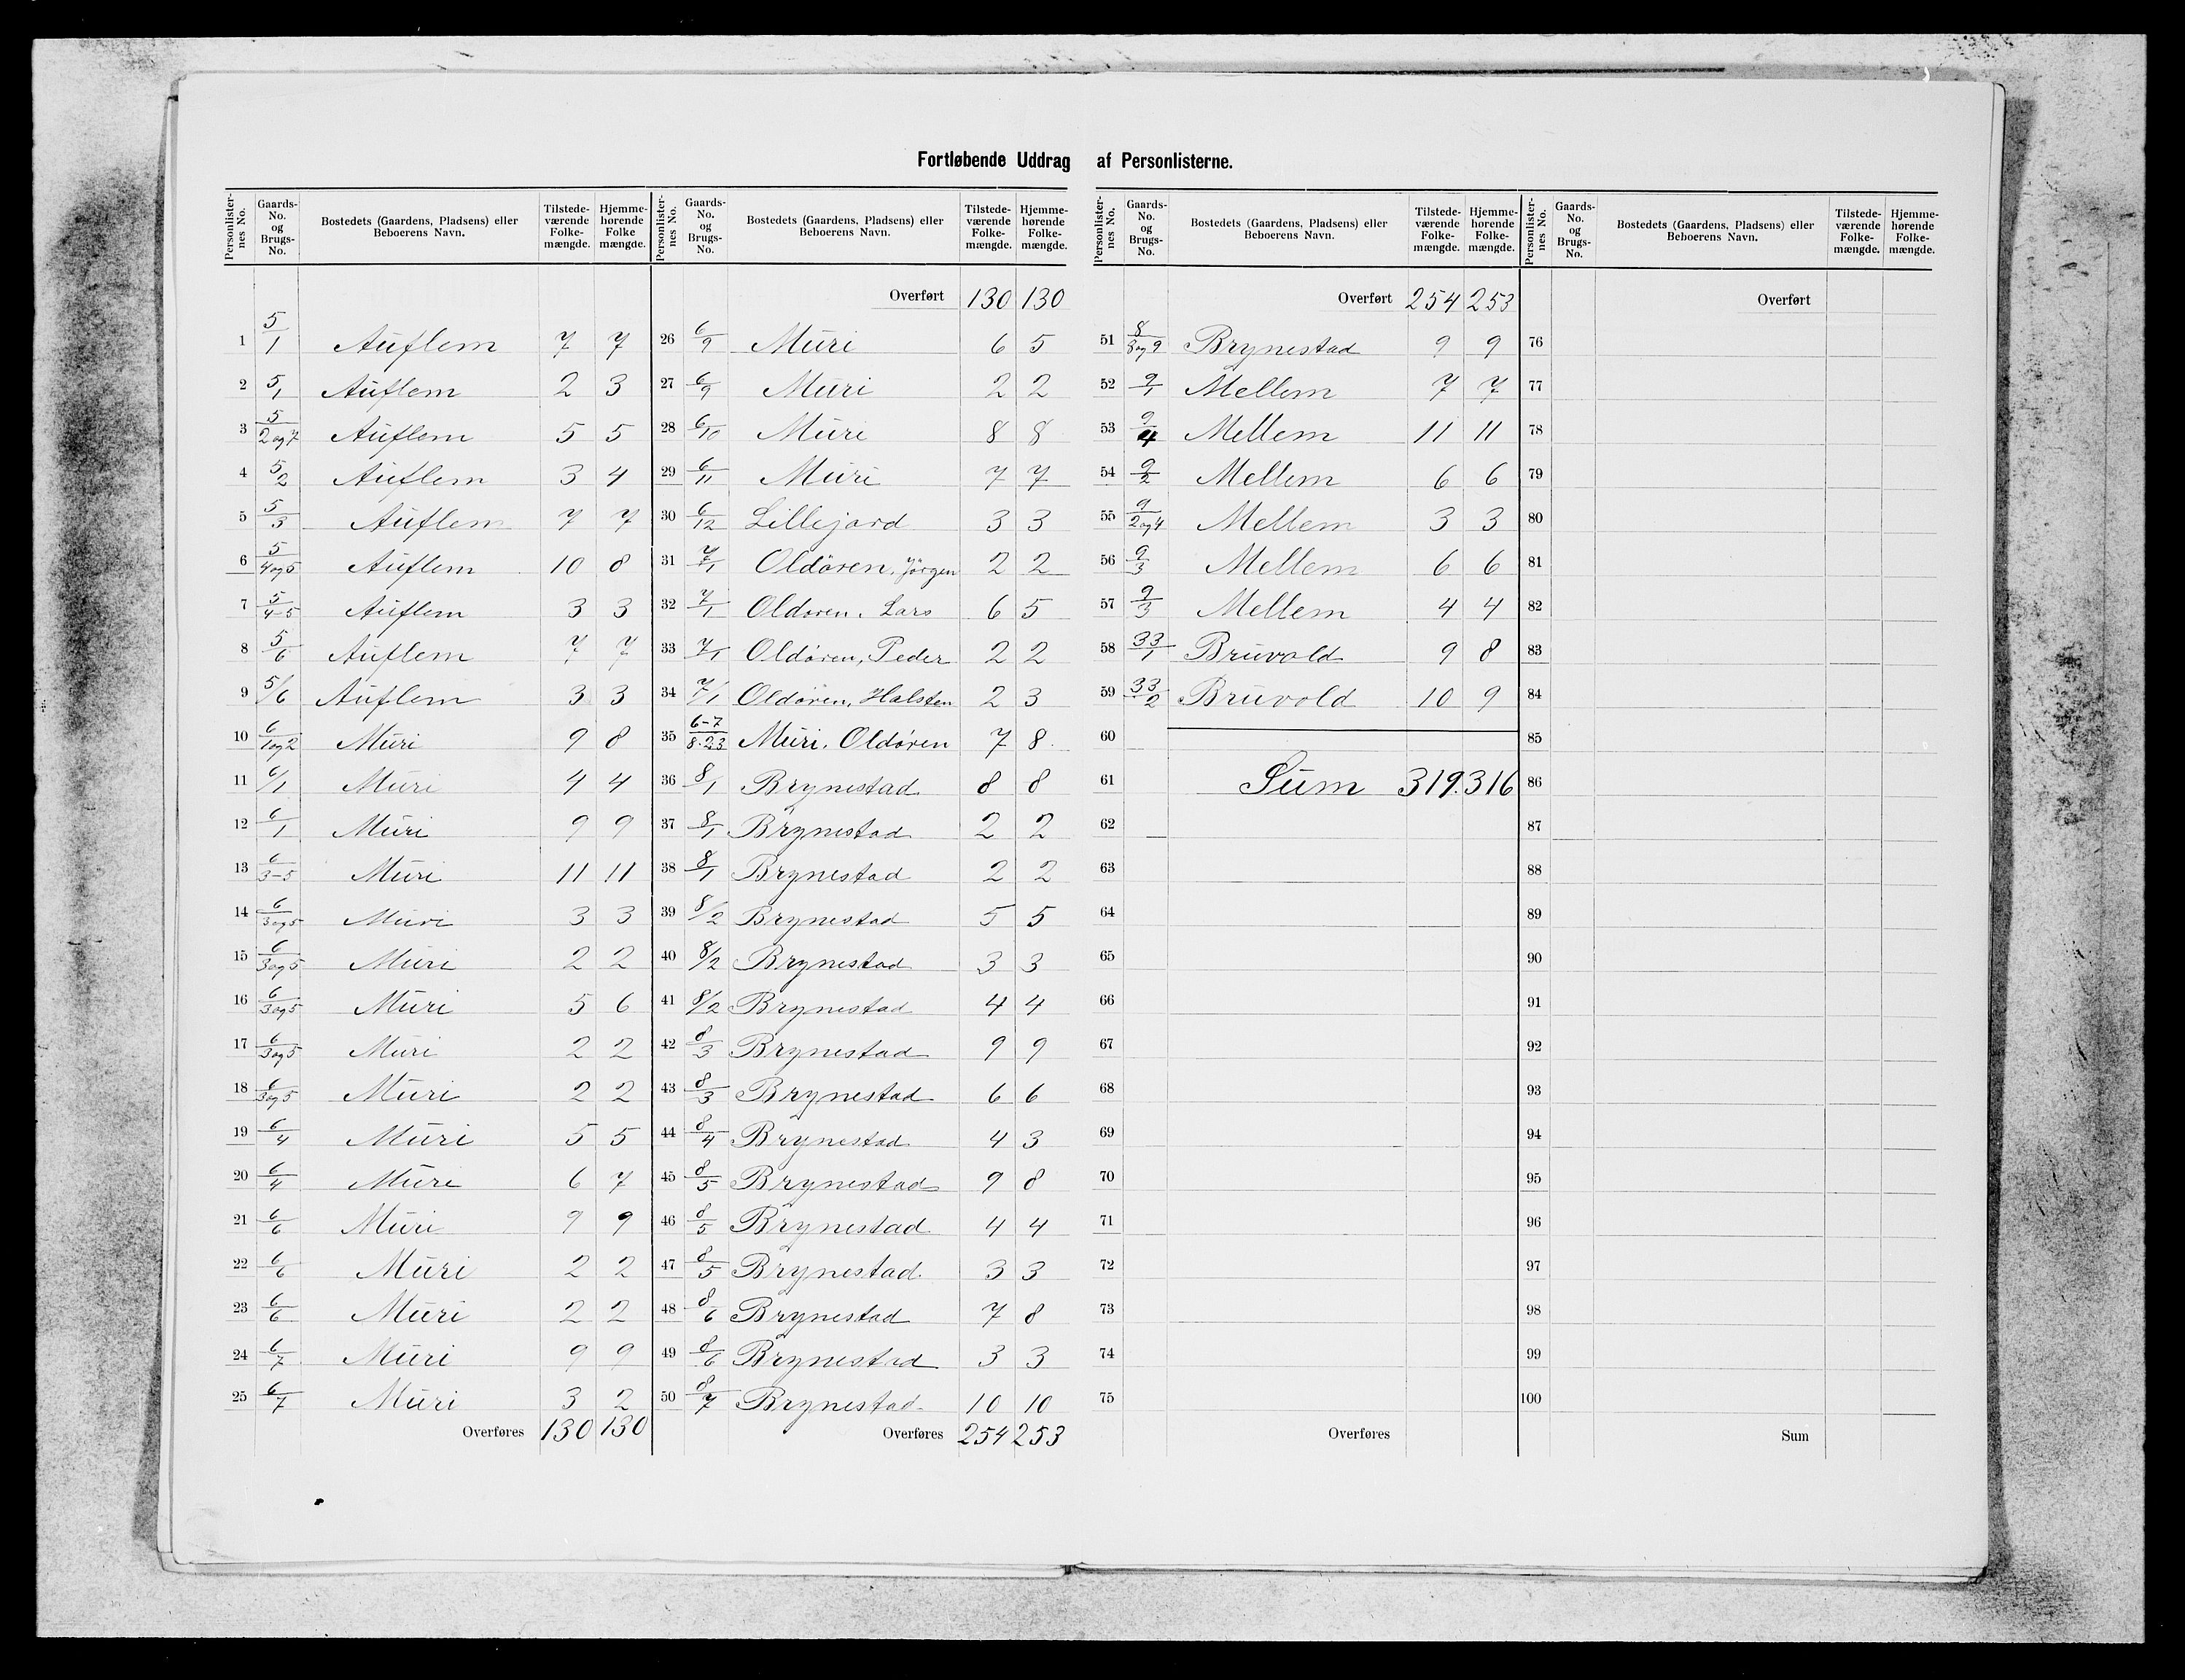 Fortløbende Uddrag af Personlisterne.
Personlister-nes No. Gaards-No. og Brugs-No. Bostedets (Gaardens, Pladsens) eller Beboerens Navn. Tilstede-værende Folke-mængde. Hjemme-hørende Folke mængde.
1 5/1 Auflem 7 7
2 5/1 Auflem 2 3
3 5/2 og 7 Auflem 5 5
4 5/2 Auflem 3 4
5 5/3 Auflem 7 7
6 5/4 og 5 Auflem 10 8
7 5/4-5 Auflem 3 3
8 5/6 Auflem 7 7
9 5/6 Auflem 3 3
10 6/1 og 2 Muri 9 8
11 6/1 Muri 4 4
12 6/1 Muri 9 9
13 6/3-5 Muri 11 11
14 6/3 og 5 Muri 3 3
15 6/3 og 5 Muri 2 2
16 6/3 og 5 Muri 5 6
17 6/3 og 5 Muri 2 2
18 6/3 og 5 Muri 2 2
19 6/4 Muri 5 5
20 6/4 Muri 6 7
21 6/6 Muri 9 9
22 6/6 Muri 2 2
23 6/6 Muri 2 2
24 6/7 Muri 9 9
25 6/7 Muri 3 2
Overføres 130 130
Personlister-nes No. Gaards-No. og Brugs-No. Bostedets (Gaardens, Pladsens) eller Beboerens Navn. Tilstede-værende Folke-mængde. Hjemme-hørende Folke-mængde.
Overført 130 130
26 6/9 Muri 6 5
27 6/9 Muri 2 2
28 6/10 Muri 8 8
29 6/11 Muri 7 7
30 6/12 Lillejord 3 3
31 7/1 Oldøren, Jørgen 2 2
32 7/1 Oldøren, Lars 6 5
33 7/1 Oldøren, Peder 2 2
34 7/1 Oldøren, Halsten 2 3
35 6-7/8.23 Muri, Oldøren 7 8
36 8/1 Brynestad 8 8
37 8/1 Brynestad 2 2
38 8/1 Brynestad 2 2
39 8/2 Brynestad 5 5
40 8/2 Brynestad 3 3
41 8/2 Brynestad 4 4
42 8/3 Brynestad 9 9
43 8/3 Brynestad 6 6
44 8/4 Brynestad 4 3
45 8/5 Brynestad 9 8
46 8/5 Brynestad 4 4
47 8/5 Brynestad 3 3
48 8/6 Brynestad 7 8
49 8/6 Brynestad 3 3
50 8/7 Brynestad 10 10
Overføres 254 253
Personlister-nes No. Gaards-No. og Brugs-No. Bostedets (Gaardens, Pladsens) eller Beboerens Navn. Tilstede-værende Folke-mængde. Hjemme-hørende Folke-mængde.
Overført 254 253
51 8/8 og 9 Brynestad 9 9
52 9/1 Mellem 7 7
53 9/4 Mellem 11 11
54 9/2 Mellem 6 6
55 9/2 og 4 Mellem 3 3
56 9/3 Mellem 6 6
57 9/3 Mellem 4 4
58 33/1 Bruvold 9 8
59 33/2 Bruvold 10 9
60
61 Sum 319. 316
62
63
64
65
66
67
68
69
70
71
72
73
74
75
Overføres
Personlister-nes No. Gaards-No. og Brugs-No. Bostedets (Gaardens, Pladsens) eller Beboerens Navn. Tilstede-værende Folke-mængde. Hjemme-hørende Folke-mængde.
Overført
76
77
78
79
80
81
82
83
84
85
86
87
88
89
90
91
92
93
94
95
96
97
98
99
100
Sum